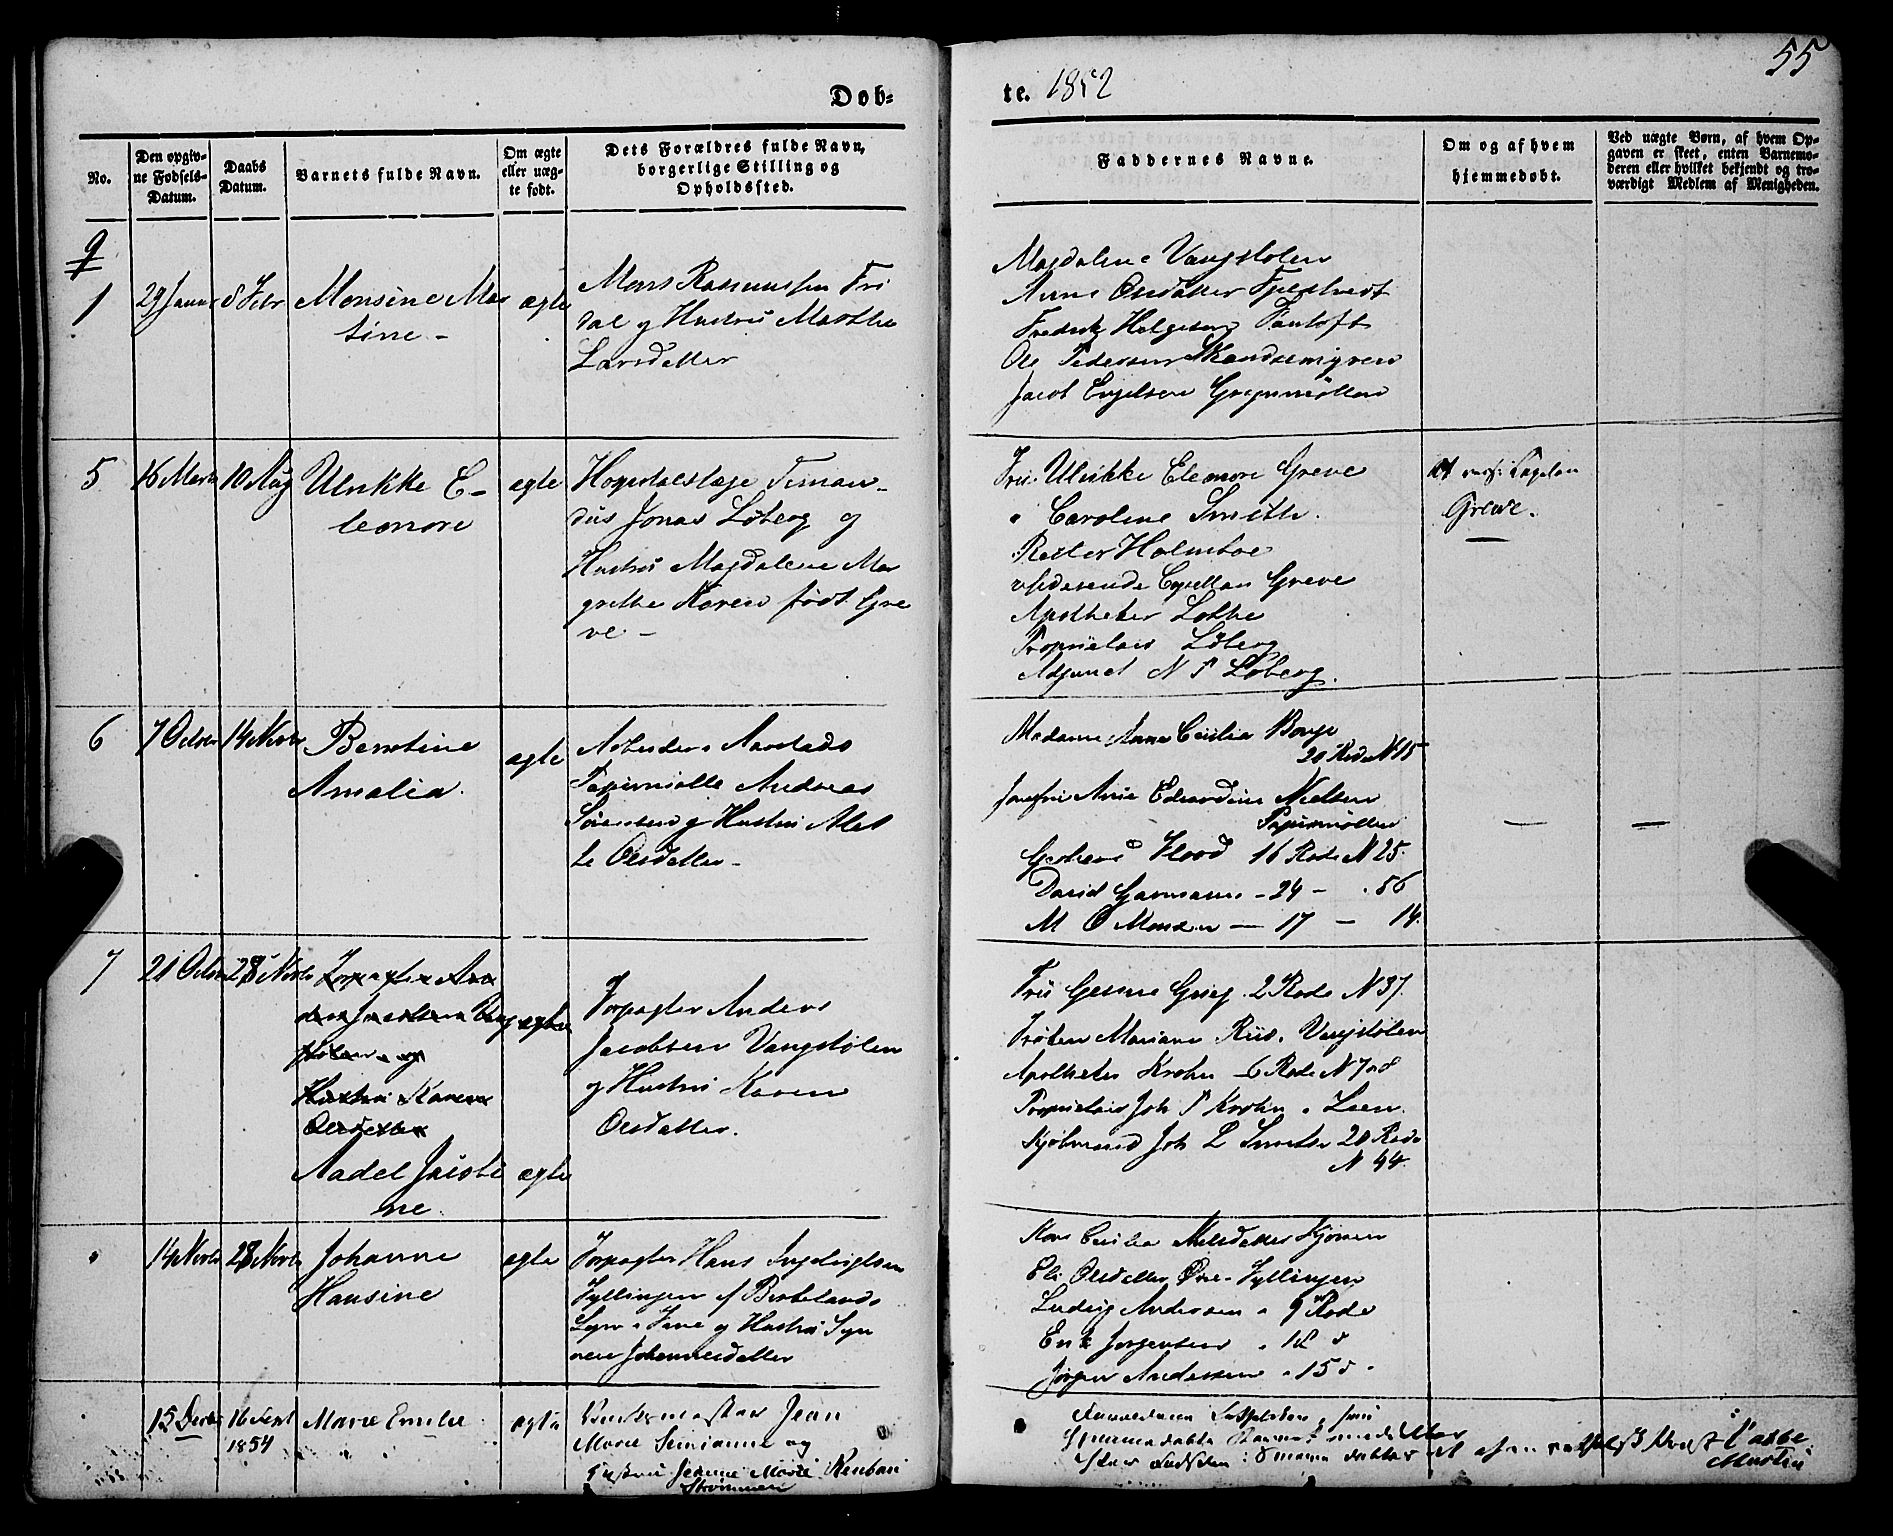 55
Dob-
te. 1852
No.
Den opgiv-
ne Fødsels-
Datum.
Daabs
Datum.
Barnets fulde Navn.
Om ægte
eller uæg-
te født.
Dets Forældres fulde Navn,
borgerlige Stilling og
Opholdssted.
Faddernes Navne.
Om og af hvem
hjemmedøbt.
Ved uægte Børn, af hvem Op-
gaven er skeet, enten Barnemo-
deren eller hvilket bekjendt og tro-
værdigt Medlem af Menigheden.
1
29 Januar
8 Febr
Monsine Mar
tine -
ægte
Mons Rasmussen Fri
dal og Hustru Marthe
Larsdatter
Magdalene Vangstølen
Anne Olsdatter
Fredrik Helgesen Fantoft
Ole Pedersen
Jacob Engelsen
5
16 Marts
10 Aug
Ulrikke E-
leonore
ægte
Hospitalslæge Timan-
dus Jonas Löberg og
Hustru Magdalene Mar
grethe Karen født Gre
ve -
Fru Ulrikke Eleonore Greve
" Caroline Smith.
Holmboe
residerende Capellan Greve
Apotheker Lothe
Proprietair Löberg
Adjunct N P Löberg.
Greve.
6
7 Octobr
14 Novbr
Berntine
Amalia.
ægte
Arbeider i Aarstads
Papirmölle Andreas
Sörensen og Hustru Alet
te Olsdatter -
Madame Anna Cecilia
20 Rode N 15
Jomfru Anne Edvardine Nielsen
Papirmöllen
Flood 16 Rode N 25.
David Garmann - 24 - . 56
M O Monsen - 17 - 14.
7
21 Octbr
28 Novbr
Forpagter An
ders Jacobsen Vang
stølen og
Hustru Karen
Olsdatter
Aadel Jacobi
ne.
ægte
ægte
Forpagter Anders
Jacobsen Vangstølen
og Hustru Karen
Olsdatter.
Fru Gesine Grieg 2 Rode N 37.
Frøken Mariane Riis. Vangstølen
Apotheker Krohn - 6 Rode N 7 8
Proprietair Joh P Krohn
Kjøbmand Joh L Smith 20 Rode
N 44.
14 Novbr
28 Novbr
Johanne
Hansine
ægte
Forpagter Hans Ingebrigtsen
Fyllingen af Birkelands
Sogn i Fane og Hustru Syn
neve Johannesdatter
Cecilia Nilsdatter
Eli Olsdatter Øvre-Fyllingen
Ludvig Andersen . 9 Rode
Erik Jørgensen . 18 "
Jørgen Andersen . 15 "
15 Decbr
16 Sept
1854
Marie Emilie
ægte
Jean
Marie og
Hustru Jeanne Marie